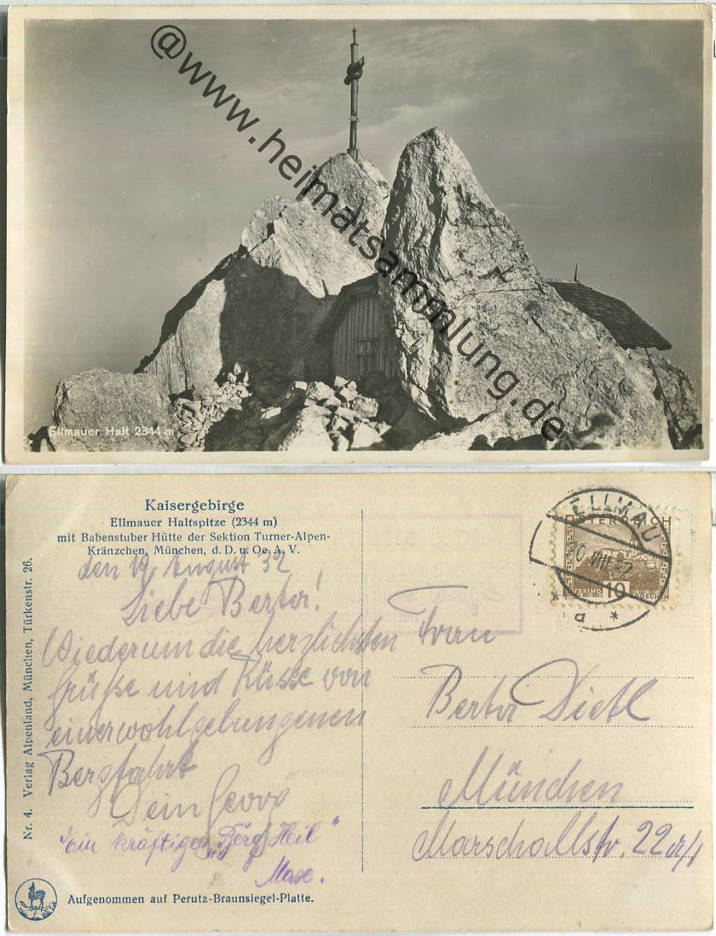 @www.heimatsammlung.de
Ellmauer Halt 2344 m
Kaisergebirge
Ellmauer Haltspitze (2344 m)
mit Babenstuber Hütte der Sektion Turner-Alpen-
Kränzchen, München, d. D. u. Oe. A. V.
den 19. August 32
Liebe Berta!
Wiederum die herzlichsten
Grüße und Küsse von
einer wohlgelungenen
Bergfahrt
Dein Georg
"Ein kräftiges Berg Heil"
Max.
Nr. 4. Verlag Alpenland, München, Türkenstr. 26.
Aufgenommen auf Perutz-Braunsiegel-Platte.
ELLMAU
VIII. 32
a
ÖSTERREICH
10
Frau
Berta Dietl
München
Marschallstr. 22